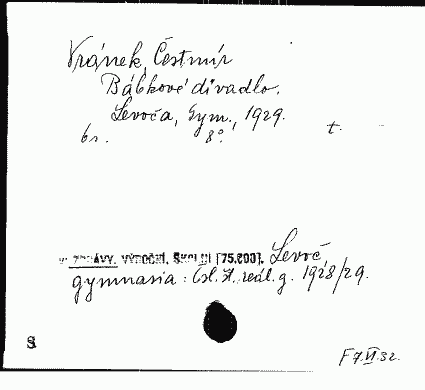 Vránek, Čestmír
Bábkové divadlo.
Levoča, Gym., 1929.
6 s. 8°. t.
v: ZPRÁVY, VÝROČNÍ, ŠKOLNÍ [75.200]. Levoč,
gymnasia: Čsl. st. reál. g. 1928/29.
S
F 7.VI.32.